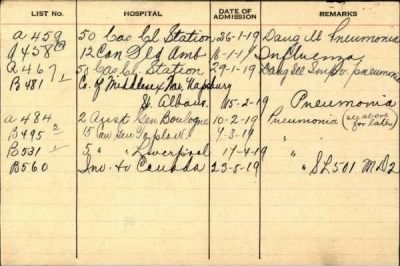 LIST NO. HOSPITAL DATE OF ADMISSION REMARKS
A 459 50 Cas Cl Station 26-1-19 Dang Ill Pneumonia
A 458 12 Can Fld Amb 16-1-19 Influenza
A 467 50 Cas Cl Station 29-1-19 Dang Ill Pneumonia
B 481 Co. of Middlesex War Napsbury
St Albans. 15-2-19 Pneumonia
A 484 2 Aust Gen Boulogne 10-2-19 Pneumonia (see above for later)
B 495 2 15 Can Gen Taplow 7-3-19 "
B 531 5 " Liverpool 17-4-19 "
B 560 Inv. to Canada 23-5-19 " SL 501 MD2